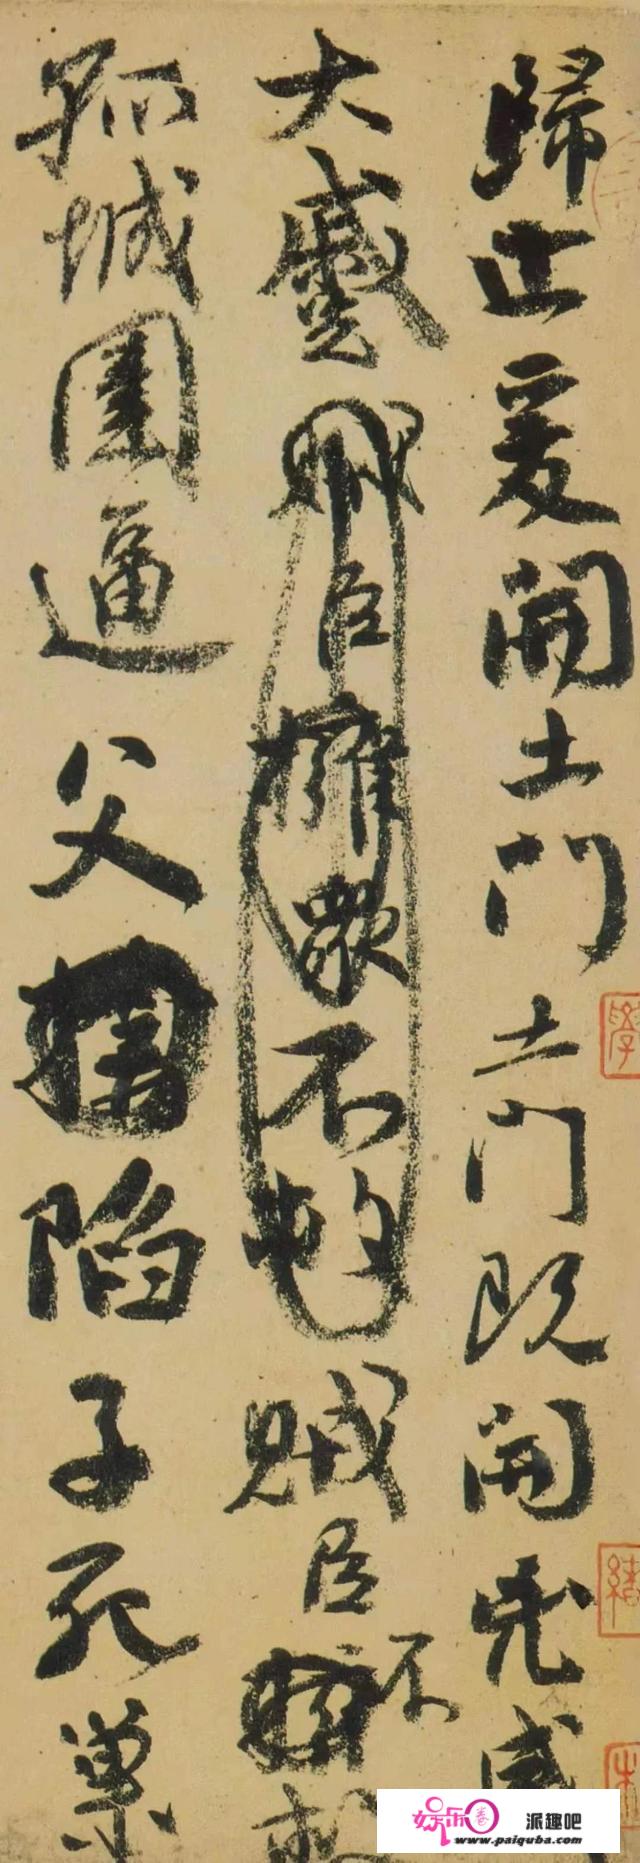 歸止爰開土門土門既開兇威
大蹙賊臣擁衆不救賊臣不救
孤城圍逼父陷子死巢
學
娱乐圈 派趣吧
www.paiquba.com